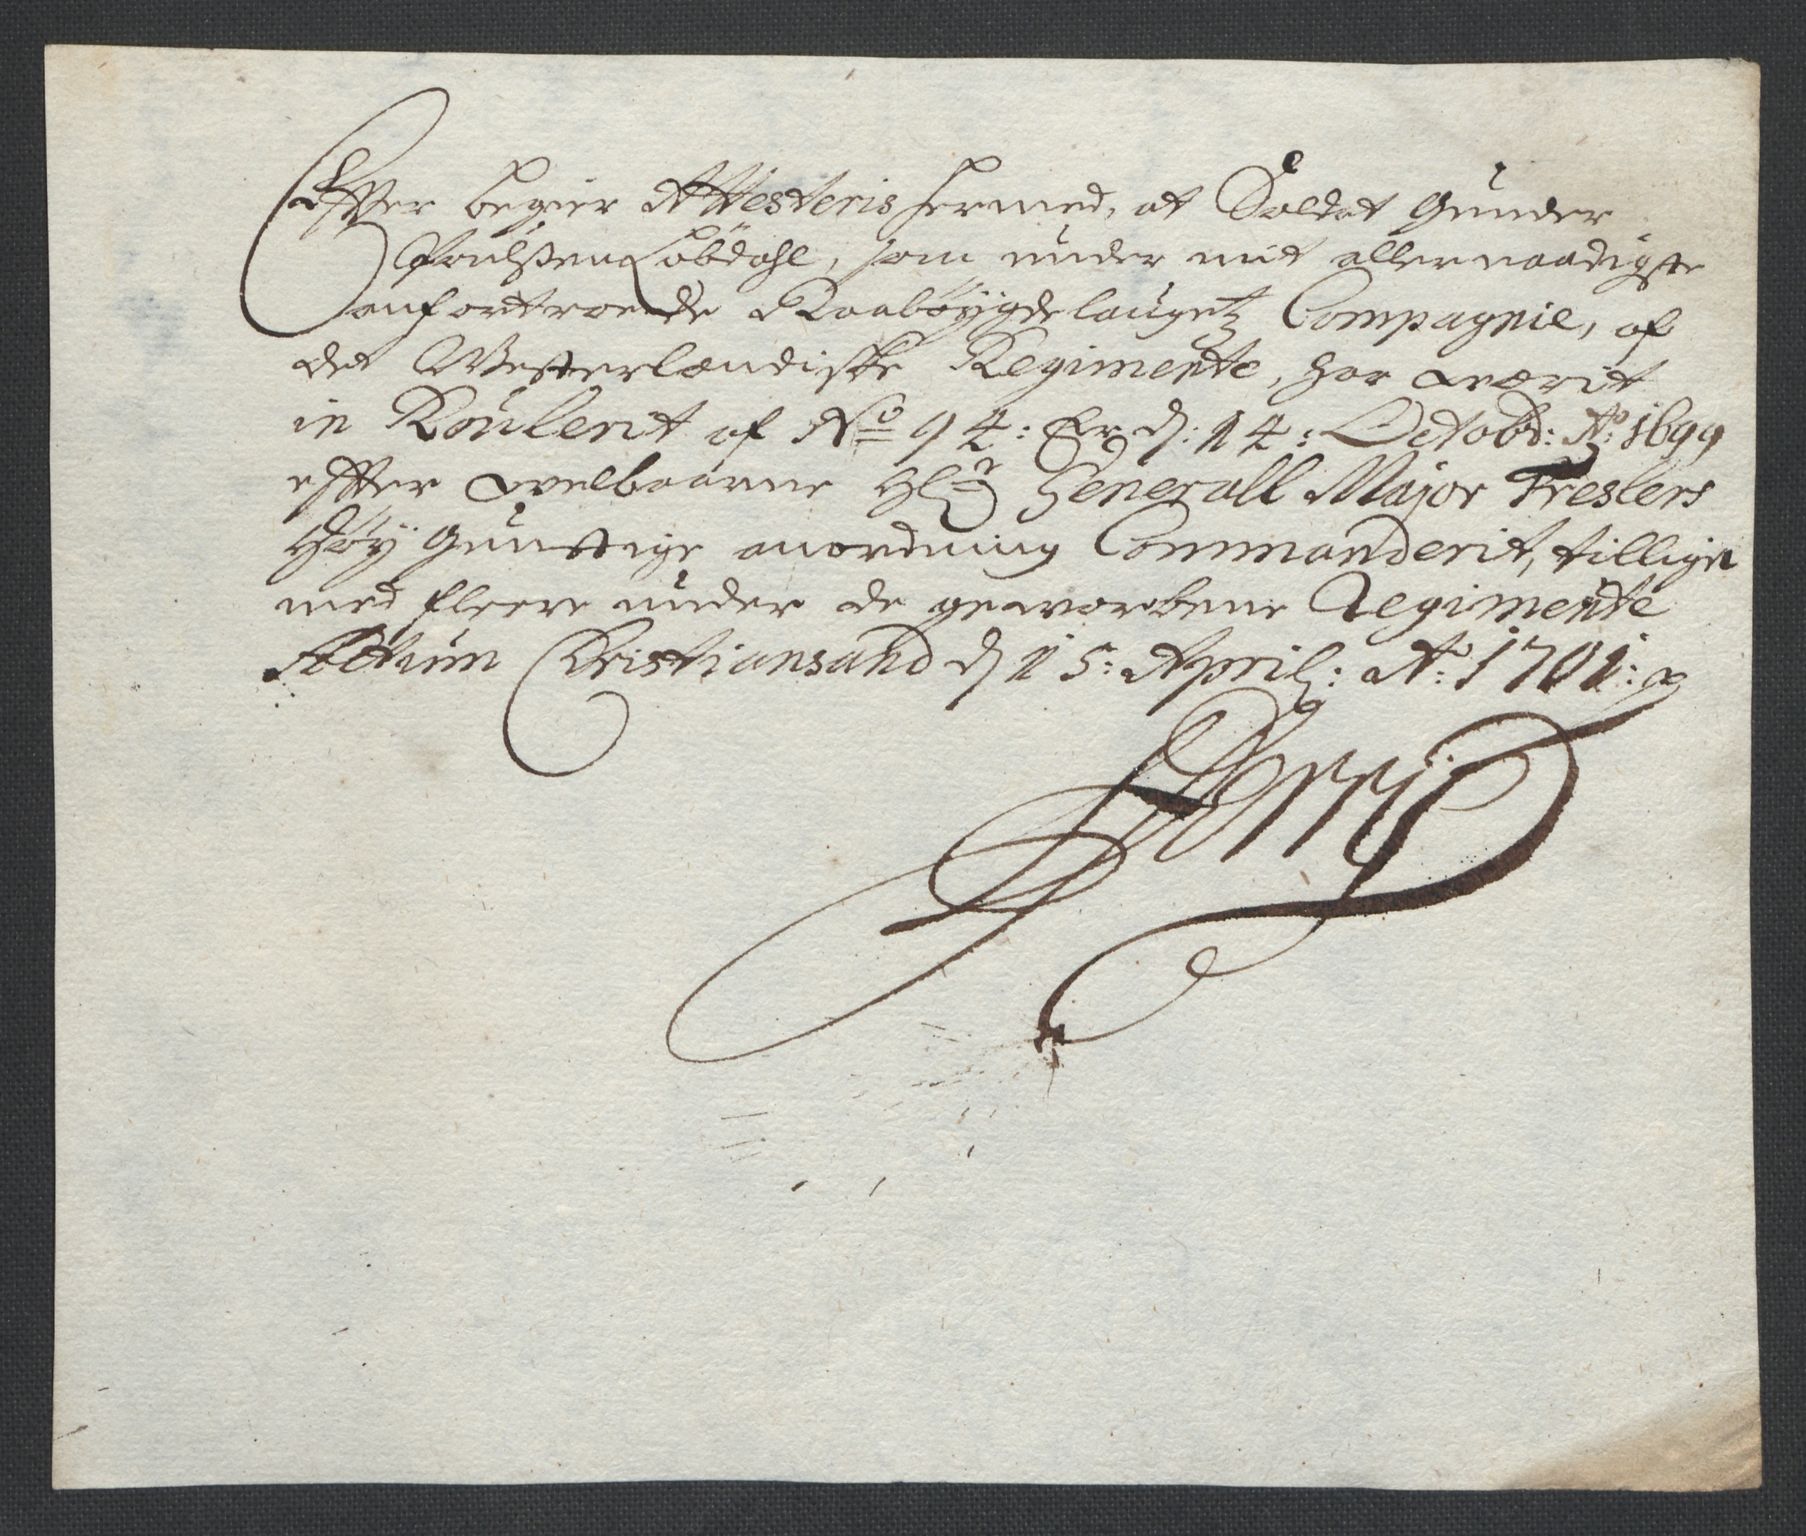 Effter begier Attesteris hermed, at Soldat Gunder
Poulsßen Løbdahl, som under mit allernaadigste
anfortroede Raabøÿgdelaugetz Compagnie, af
det Westerlændiske Regimente, har værit
in Roulerit af No 94: Er d: 14: Octobr: Ao 1699
effter velbaarne Hl: Generall Major Treslers
Høÿ Gunstige anordning Commanderit, tillige
med fleere under de geworbene Regimente
Actum Christiansand d 15: April: Ao: 1701: